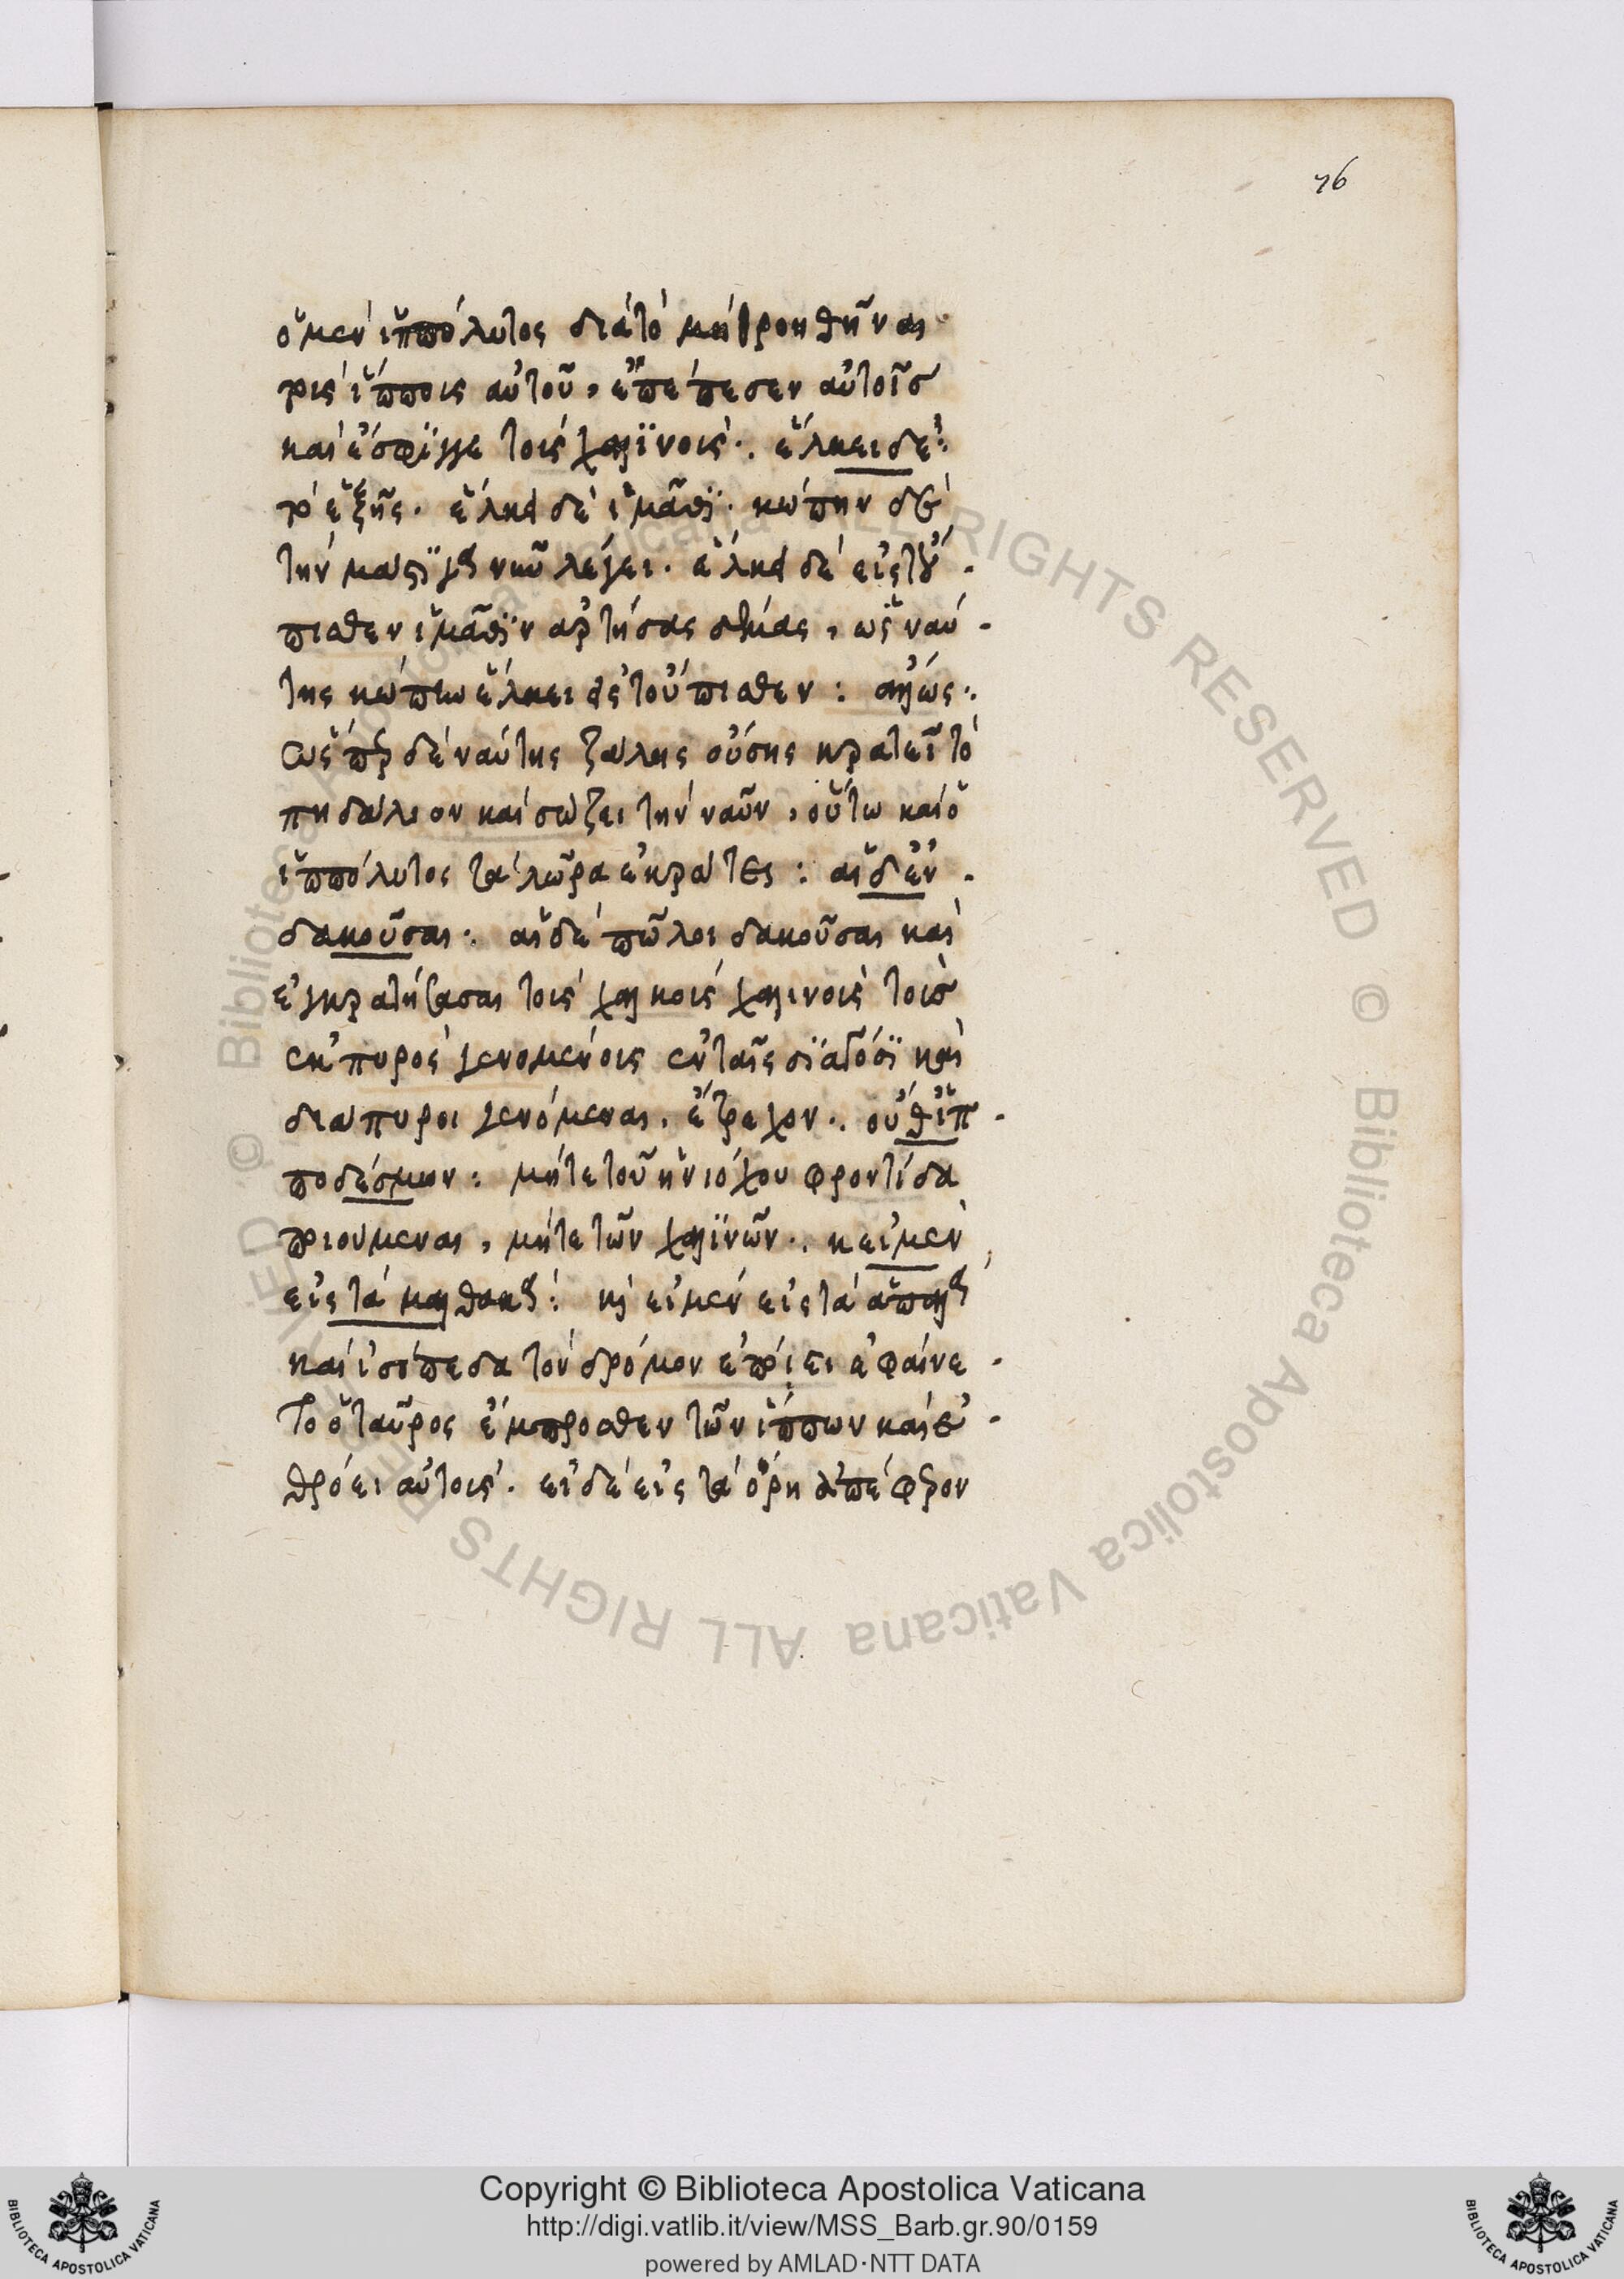 76
ὁ μὲν ἱππόλυτος διὰ τὸ μὴ θροηθῆναι
τοῖς ἵπποις αὐτοῦ, ἐπέπεσεν αὐτοῖς
καὶ ἔσφιγγε τοῖς χαλϊνοῖς·. ἕλκει δέ:
τὸ ἑξῆς· ἕλκει δὲ ἱμᾶσϊ· κώπην δὲ
τὴν μάστϊγα νῦν λέγει· ἕλκει δὲ εἰς τοὐ-
πισθεν ἱμᾶσϊν ἀρτήσας δέμας, ὡς ναύ-
της κώπην ἕλκει εἰς τοὐπισθεν: ἄλλως·.
ὥσπερ δὲ ναύτης ζάλης οὔσης κρατεῖ τὸ
πηδάλιον καὶ σώζει τὴν ναῦν, οὕτω καὶ ὁ
ἱππόλυτος τὰ λῶρα ἐκράτει: αἱ δ' ἐν-
δακοῦσαι·. αἱ δὲ πῶλοι δακοῦσαι καὶ
ἐγκρατήσασαι τοῖς χαλκοῖς χαλινοῖς τοῖς
ἐκ πυρὸς γενομένοις ἐν ταῖς σϊαγόσϊ καὶ
διάπυροι γενόμεναι, ἔτρεχον·. οὔθ' ἱπ-
ποδέσμων: μήτε τοῦ ἡνιόχου φροντίδα
ποιούμεναι, μήτε τῶν χαλϊνῶν·. κεἰ μὲν
εἰς τὰ μαλθακὰ: καὶ εἰ μὲν εἰς τὰ ἁπαλὰ
καὶ ἰσόπεδα τὸν δρόμον ἐποίει ἐφαίνε-
το ὁ ταῦρος ἔμπροσθεν τῶν ἵππων καὶ ἐ-
θρόει αὐτοῖς· εἰ δὲ εἰς τὰ ὄρη
Copyright © Biblioteca Apostolica Vaticana
http://digi.vatlib.it/view/MSS_Barb.gr.90/0159
powered by AMLAD·NTT DATA
BIBLIOTECA APOSTOLICA VATICANA
BIBLIOTECA APOSTOLICA VATICANA
© Biblioteca Apostolica Vaticana ALL RIGHTS RESERVED © Biblioteca Apostolica Vaticana ALL RIGHTS RESERVED